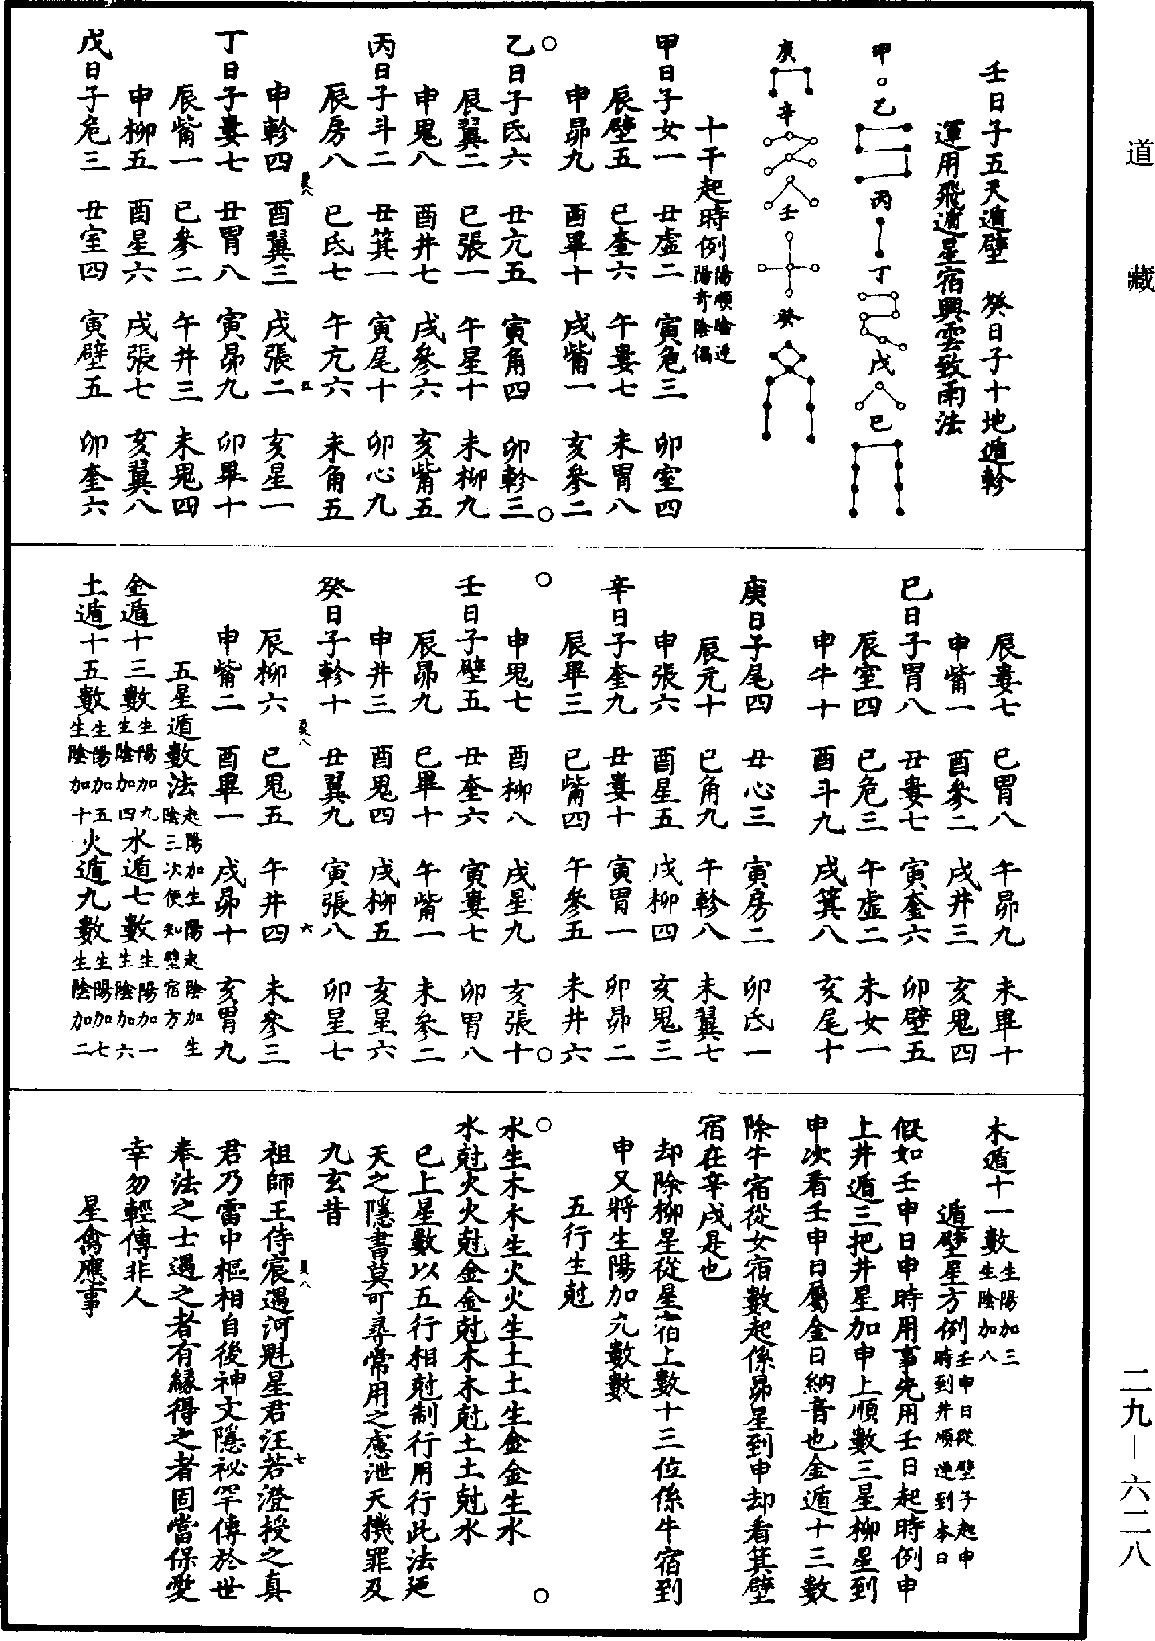 道藏
二九—六二八
壬日子五天遁壁　癸日子十地遁軫
運用飛遁星宿興雲致雨法
甲　乙　丙　丁　戊　己
庚　辛　壬　癸
十干起時例陽順陰逆陽奇陰偶
甲日子女一　丑虛二　寅危三　卯室四
辰壁五　巳奎六　午婁七　未胃八
申昴九　酉畢十　戌觜一　亥參二
乙日子氐六　丑亢五　寅角四　卯軫三
辰翼二　巳張一　午星十　未柳九
申鬼八　酉井七　戌參六　亥觜五
丙日子斗二　丑箕一　寅尾十　卯心九
辰房八　巳氐七　午亢六　未角五
申軫四　酉翼三　戌張二　亥星一
丁日子婁七　丑胃八　寅昴九　卯畢十
辰觜一　巳參二　午井三　未鬼四
申柳五　酉星六　戌張七　亥翼八
戊日子危三　丑室四　寅壁五　卯奎六
辰婁七　巳胃八　午昴九　未畢十
申觜一　酉參二　戌井三　亥鬼四
巳日子胃八　丑婁七　寅奎六　卯壁五
辰室四　巳危三　午虛二　未女一
申牛十　酉斗九　戌箕八　亥尾十
庚日子尾四　丑心三　寅房二　卯氐一
辰亢十　巳角九　午軫八　未翼七
申張六　酉星五　戌柳四　亥鬼三
辛日子奎九　丑婁十　寅胃一　卯昴二
辰畢三　巳觜四　午參五　未井六
申鬼七　酉柳八　戌星九　亥張十
壬日子壁五　丑奎六　寅婁七　卯胃八
辰昴九　巳畢十　午觜一　未參二
申井三　酉鬼四　戌柳五　亥星六
癸日子軫十　丑翼九　寅張八　卯星七
辰柳六　巳鬼五　午井四　未參三
申觜二　酉畢一　戌昴十　亥胃九
五星遁數法起陽加生陽起陰加生陰三次便知壁宿方
金遁十三數生陽加九生陰加四水遁七數生陽加一生陰加六
土遁十五數生陽加五生陰加十火遁九數生陽加七生陰加二
木遁十一數生陽加三生陰加八
遁壁星方例壬申日從壁子起申時到井順逆到本日
假如壬申日申時用事先用壬日起時例申
上井遁三把井星加申上順數三星柳星到
申次看壬申日屬金日納音也金遁十三數
除牛宿從女宿數起係昴星到申却看箕壁
宿在辛戌是也
却除柳星從星宿上數十三位係牛宿到
申又將生陽加九數數
五行生尅
水生木木生火火生土土生金金生水
水尅火火尅金金尅木木尅土土尅水
已上星數以五行相尅制行用行此法廼
天之隱書莫可尋常用之慮泄天機罪及
九玄昔
祖師王侍宸遇河魁星君汪若澄授之真
君乃雷中樞相自後神文隱祕罕傳於世
奉法之士遇之者有緣得之者固當保愛
幸勿輕傳非人
星禽應事